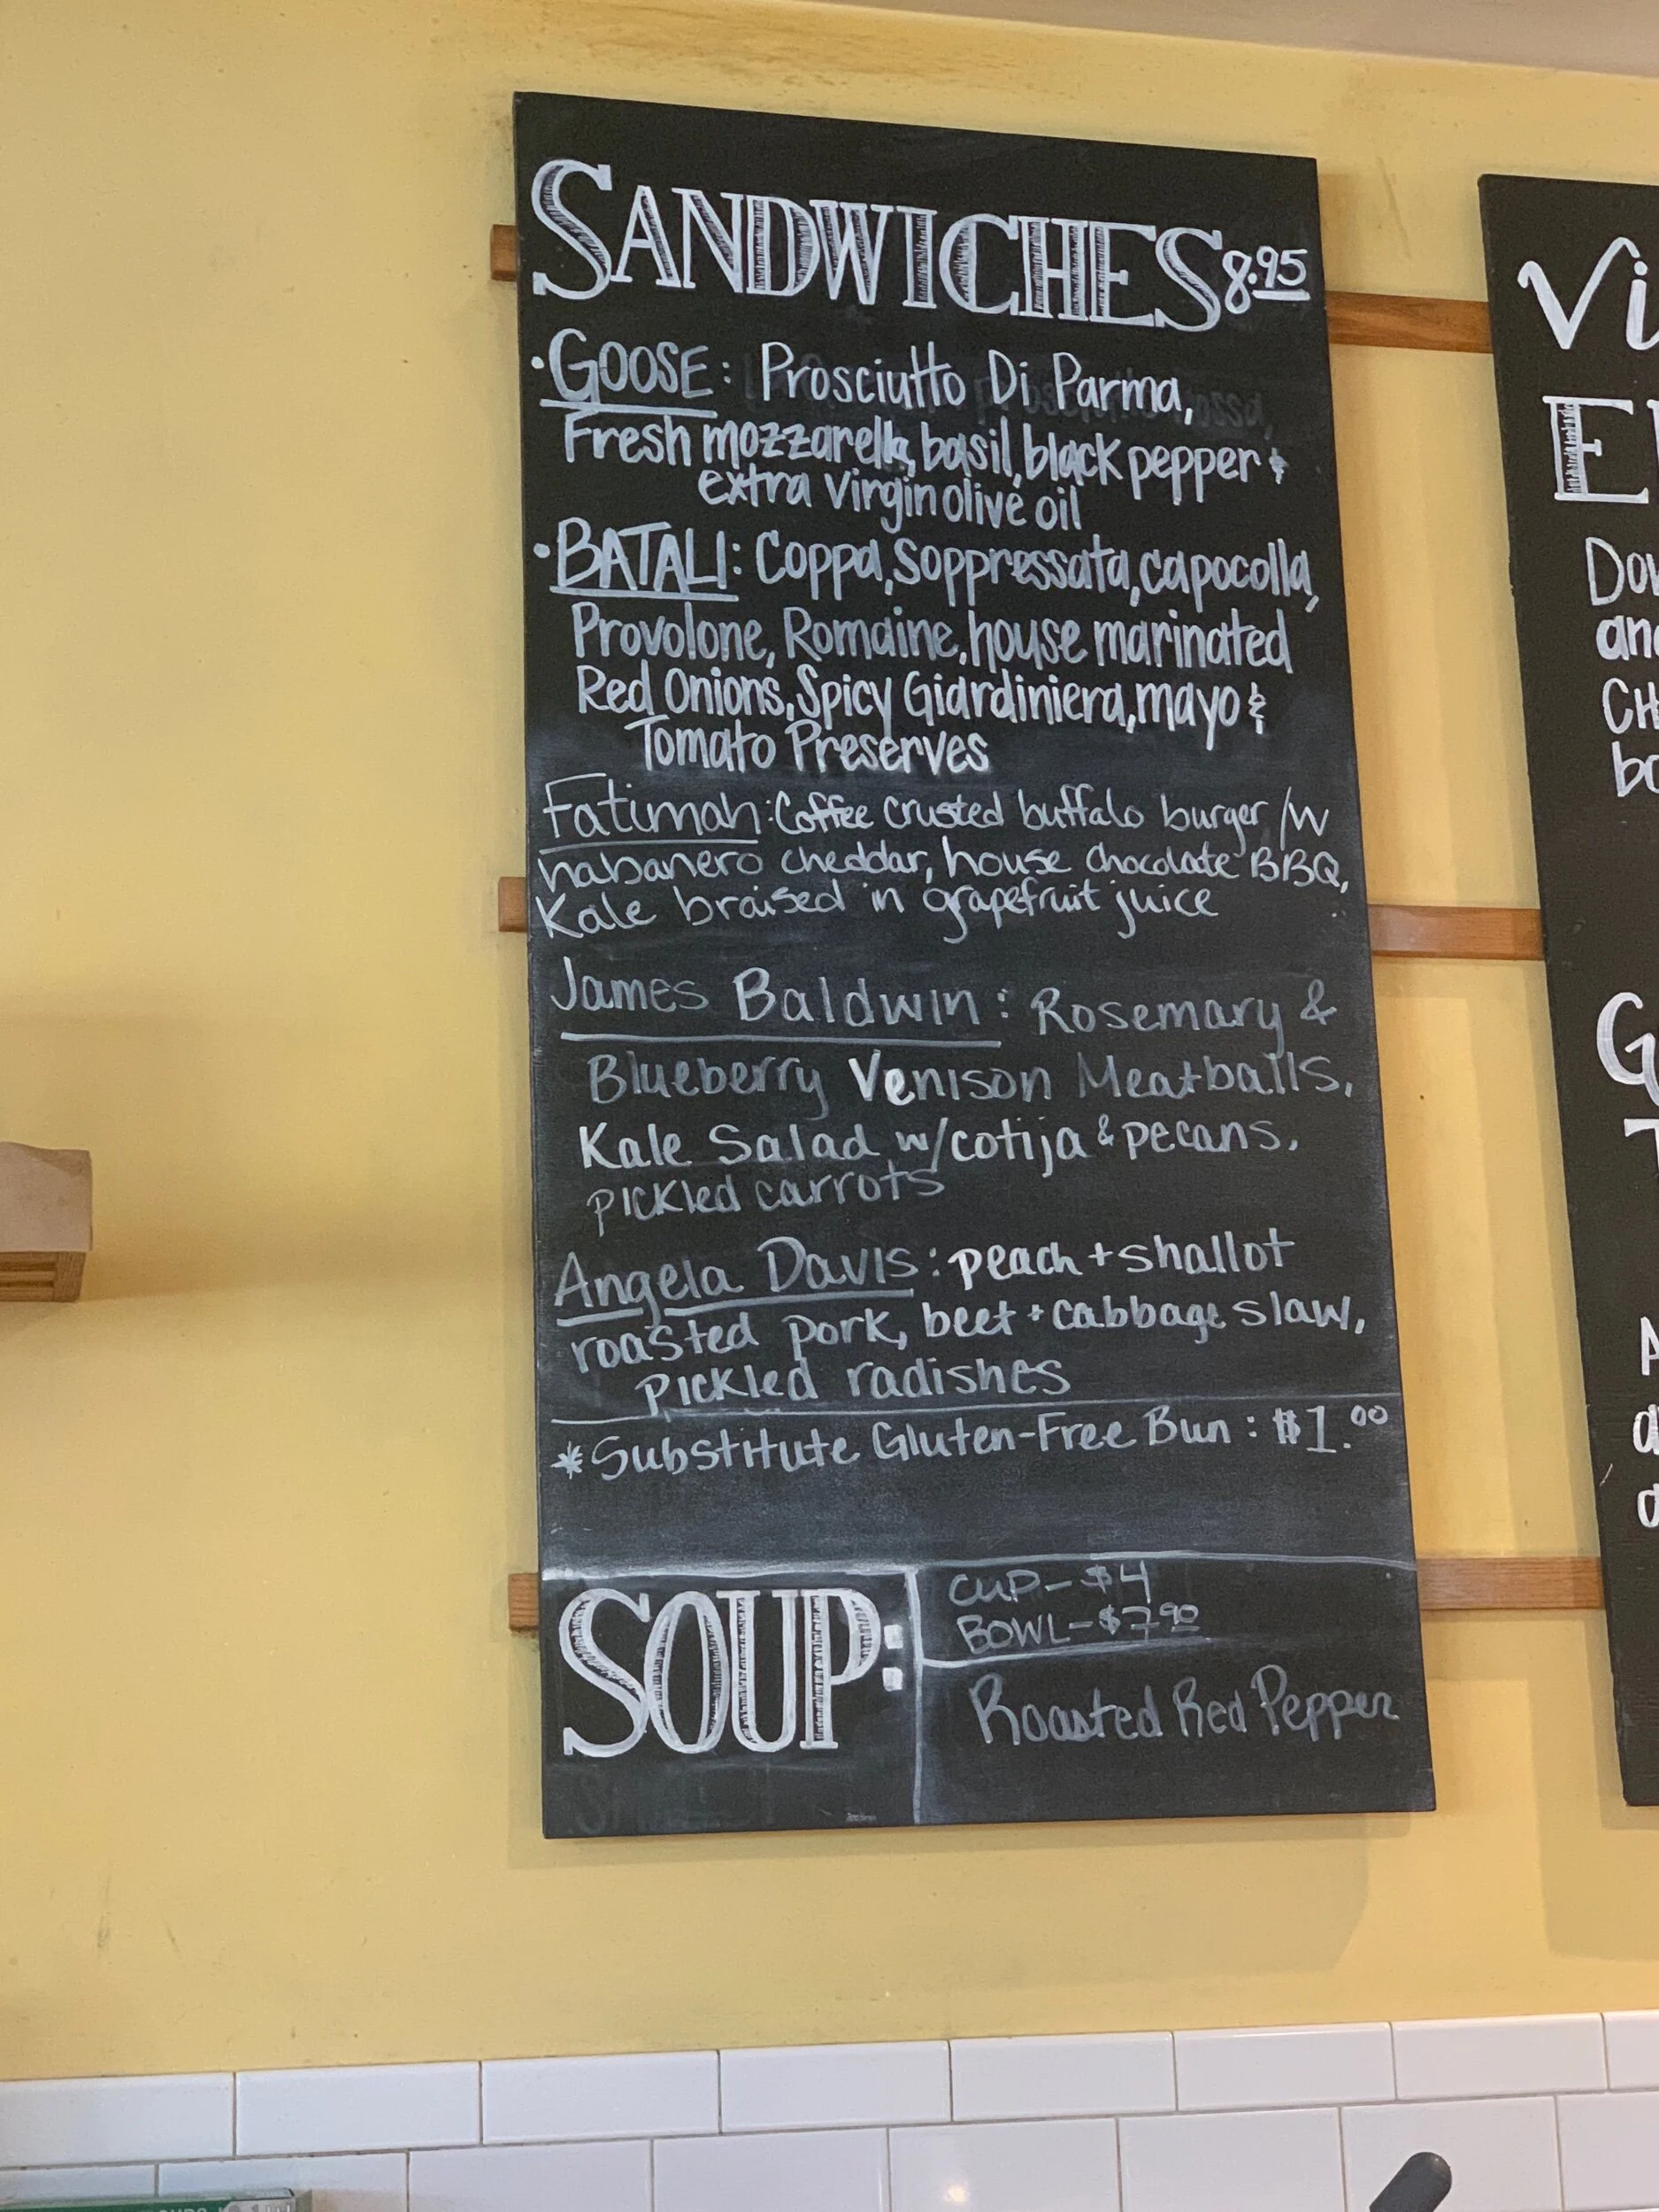 SANDWICHES 8.95
• GOOSE: Prosciutto Di Parma,
Fresh mozzarella, basil, black pepper &
extra virgin olive oil
• BATALI: Coppa, Soppressata, capocolla,
Provolone, Romaine, house marinated
Red Onions, Spicy Giardiniera, mayo &
Tomato Preserves
Fatimah: Coffee crusted buffalo burger /w
habanero cheddar, house chocolate BBQ,
Kale braised in grapefruit juice
James Baldwin: Rosemary &
Blueberry Venison Meatballs,
Kale Salad w/cotija & pecans,
pickled carrots
Angela Davis: peach + shallot
roasted pork, beet + cabbage slaw,
pickled radishes
*Substitute Gluten-Free Bun: $1.00
SOUP:
CUP- $4
BOWL- $7.90
Roasted Red Pepper
Vi
E
Dow
and
CH
bo
G
T
A